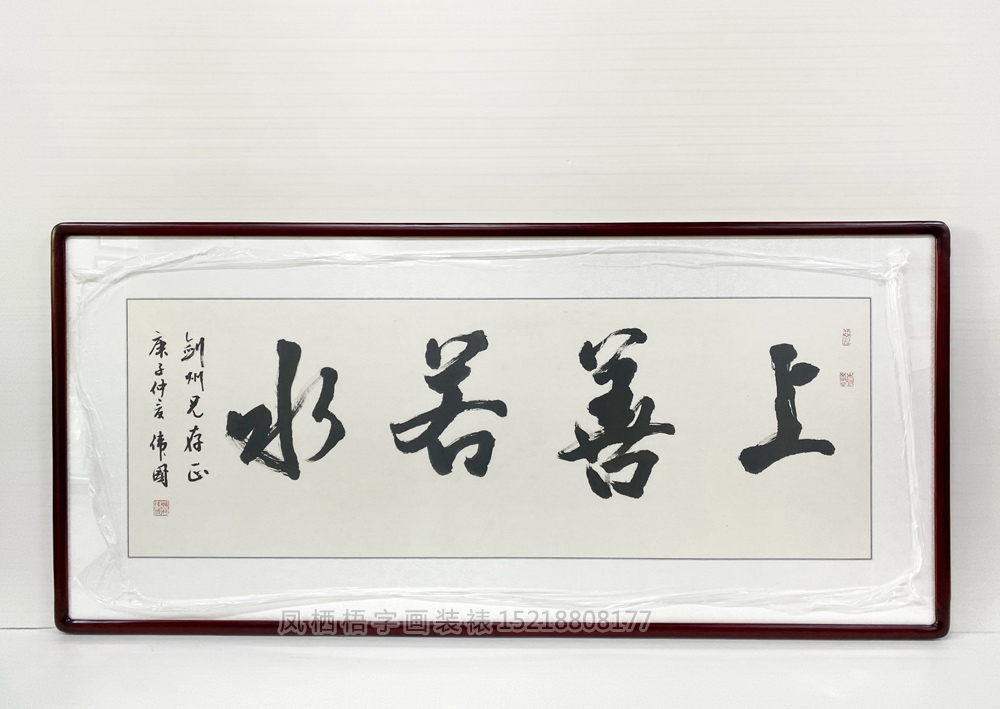 上善若水
剑州兄存正
庚子仲夏 伟国
凤栖梧字画装裱15218808177